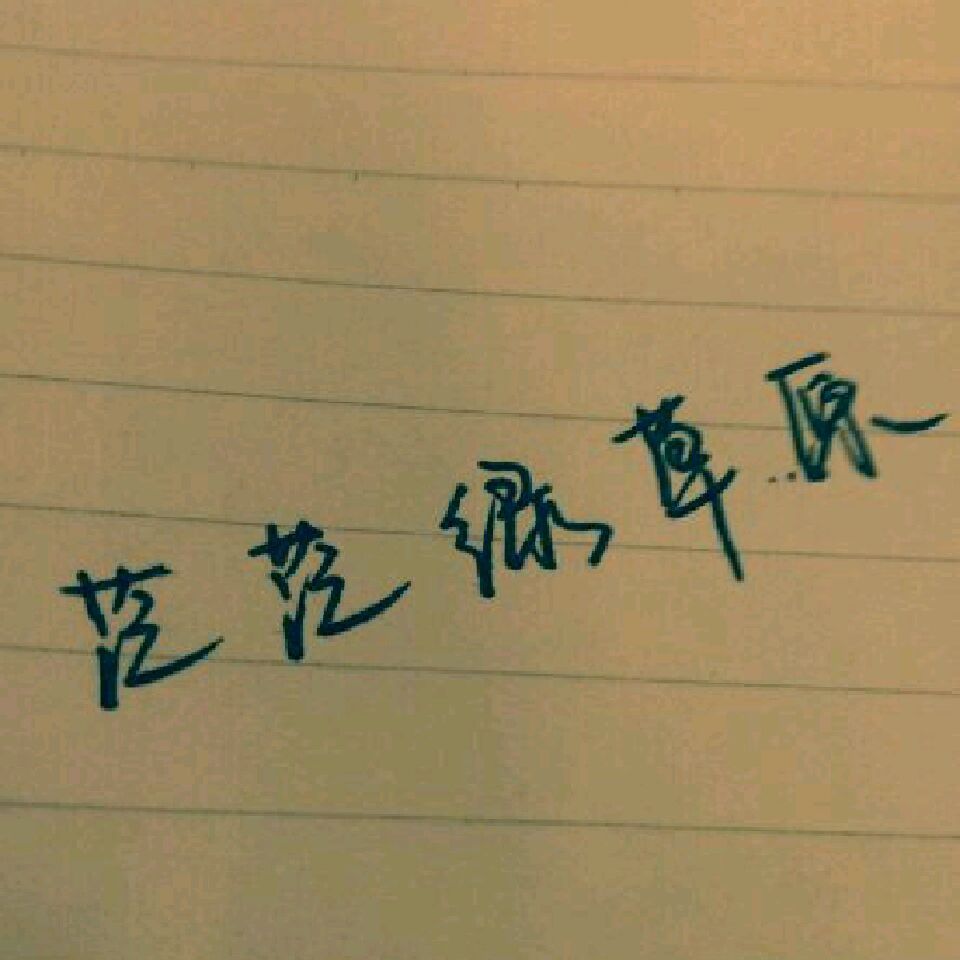 茫茫绿草原